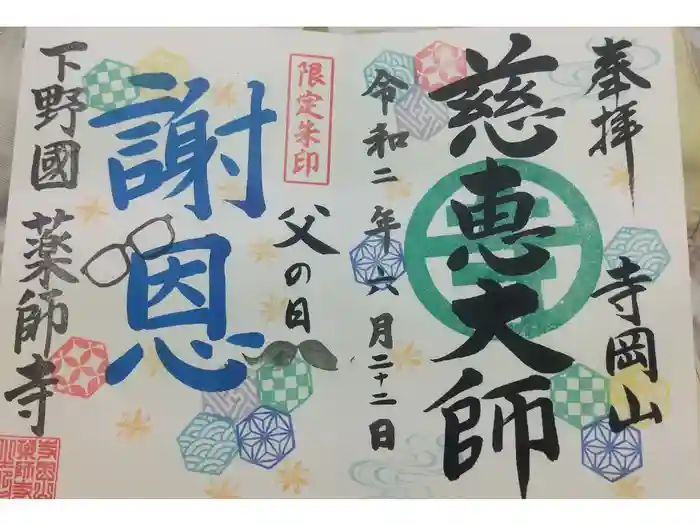 奉拝
寺岡山
慈恵大師
令和二年六月二十二日
限定朱印
父の日
謝恩
下野國 薬師寺